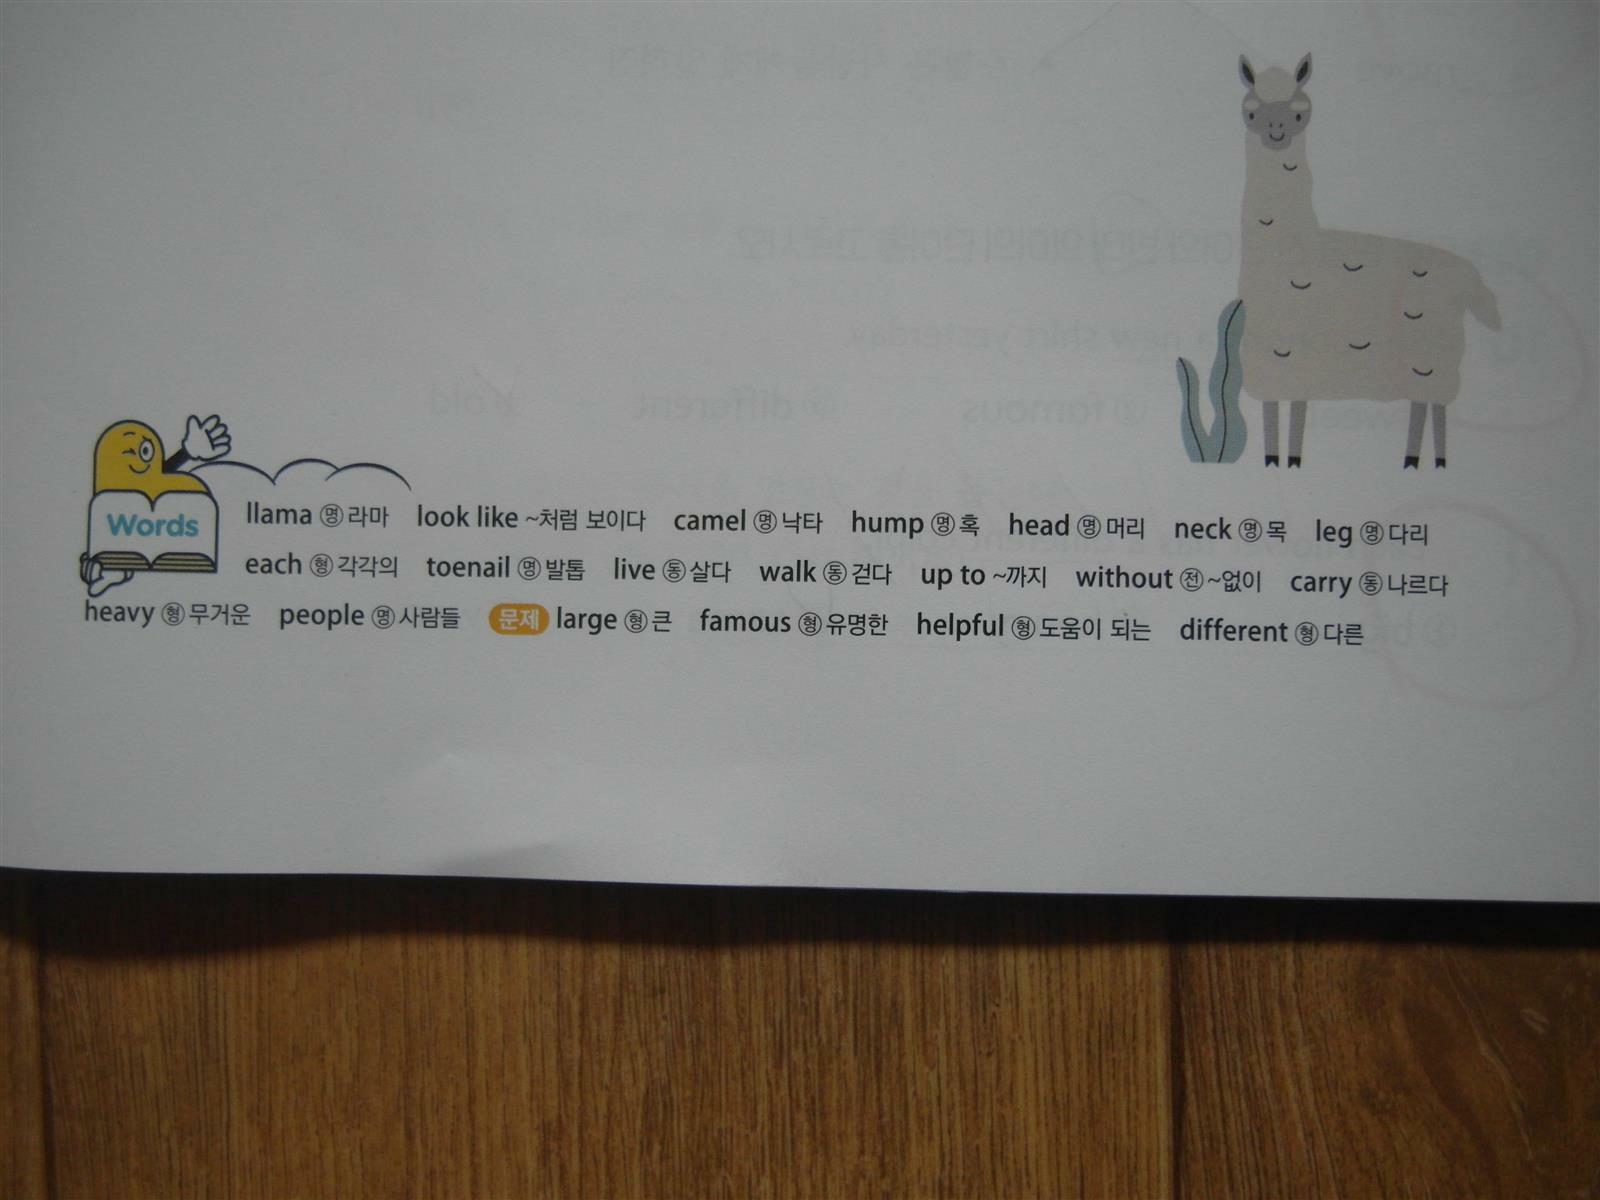 Words
llama 명 라마 look like ~처럼 보이다 camel 명 낙타 hump 명 혹 head 명 머리 neck 명 목 leg 명 다리
each 형 각각의 toenail 명 발톱 live 동 살다 walk 동 걷다 up to ~까지 without 전 ~없이 carry 동 나르다
heavy 형 무거운 people 명 사람들 문제 large 형 큰 famous 형 유명한 helpful 형 도움이 되는 different 형 다른